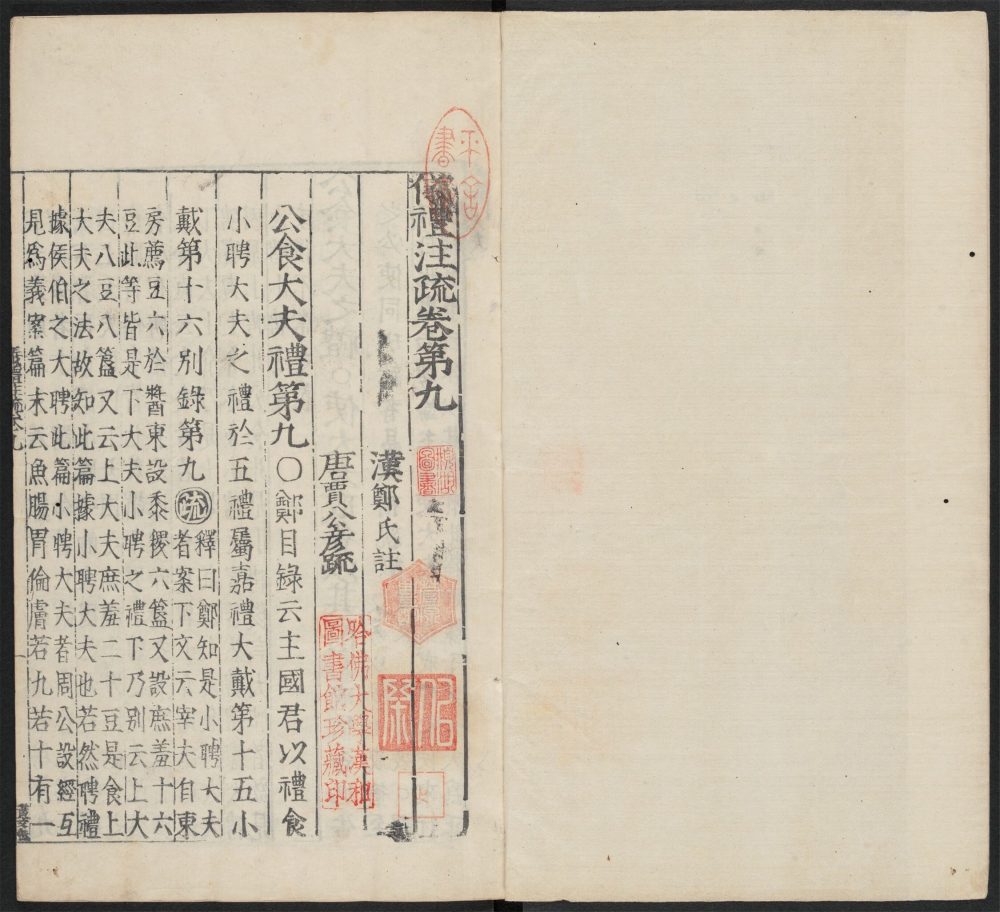 儀禮注疏卷第九
漢鄭氏註
唐賈公彥疏
公食大夫禮第九○鄭目錄云主國君以禮食
小聘大夫之禮於五禮屬嘉禮大戴第十五小
戴第十六別錄第九疏
釋曰鄭知是小聘大夫
者案下文云宰夫自東
房薦豆六於醬東設黍稷六簋又設庶羞十六
豆此等皆是下大夫小聘之禮下乃別云上大
夫八豆八簋又云上大夫庶羞二十豆是食上
大夫之法故知此篇據小聘大夫也若然聘禮
據侯伯之大聘此篇小聘大夫者周公設經互
見爲義案篇末云魚腸胃倫膚若九若十有一
哈佛大學漢和
圖書館珍藏印